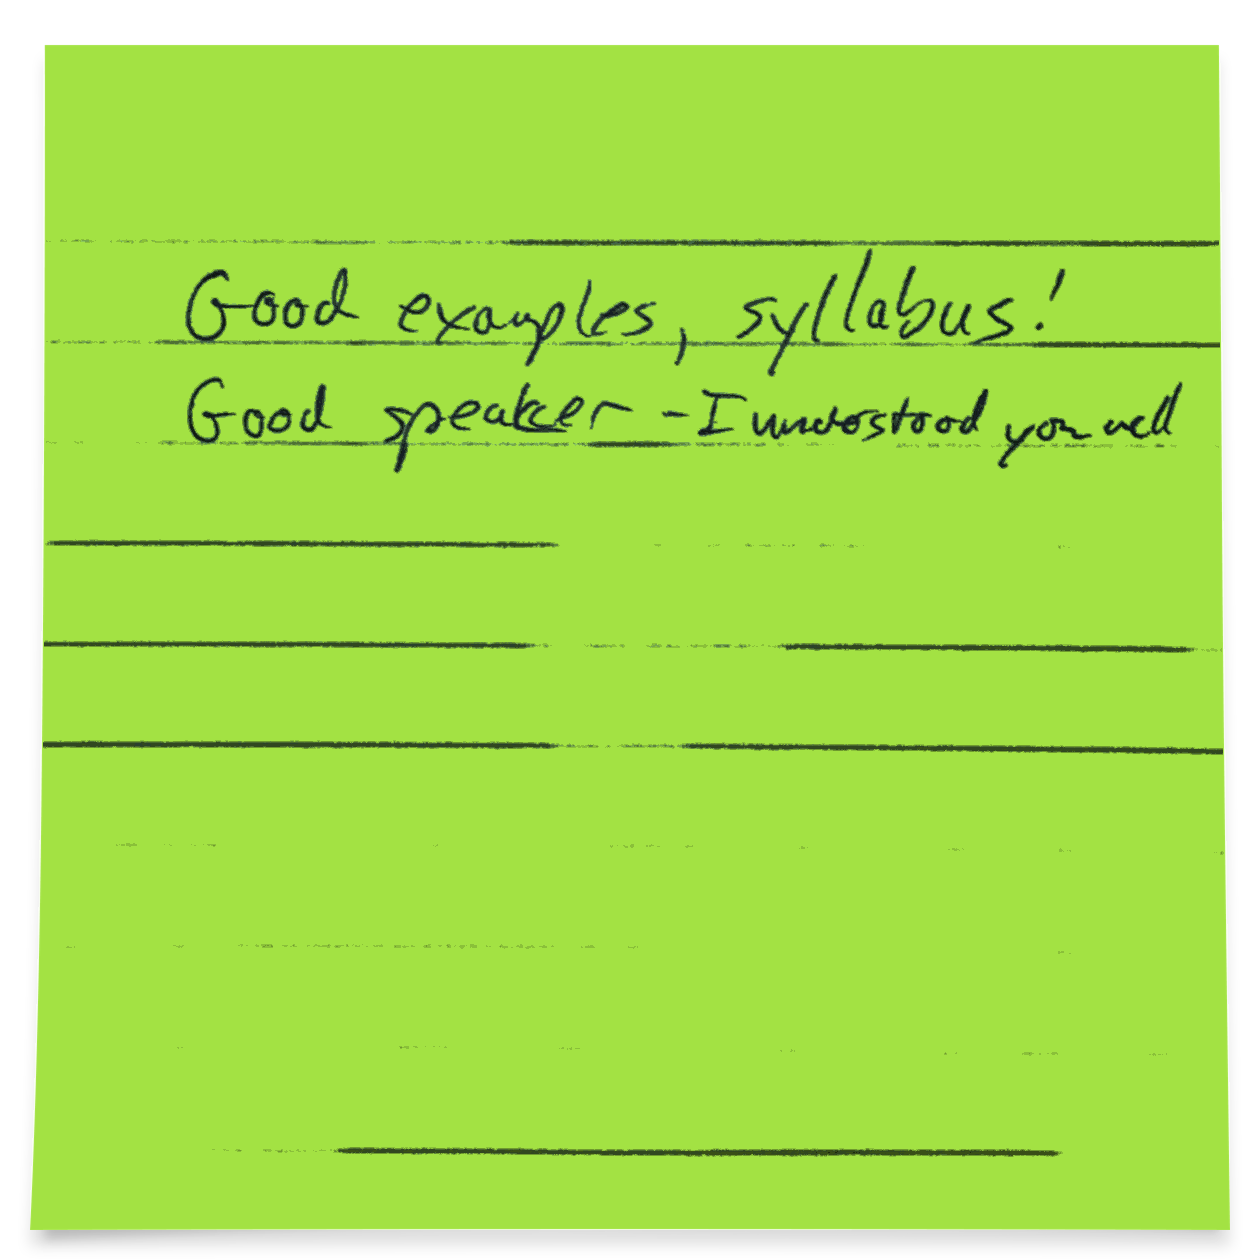 Good examples, syllabus!
Good speaker - I understood you well